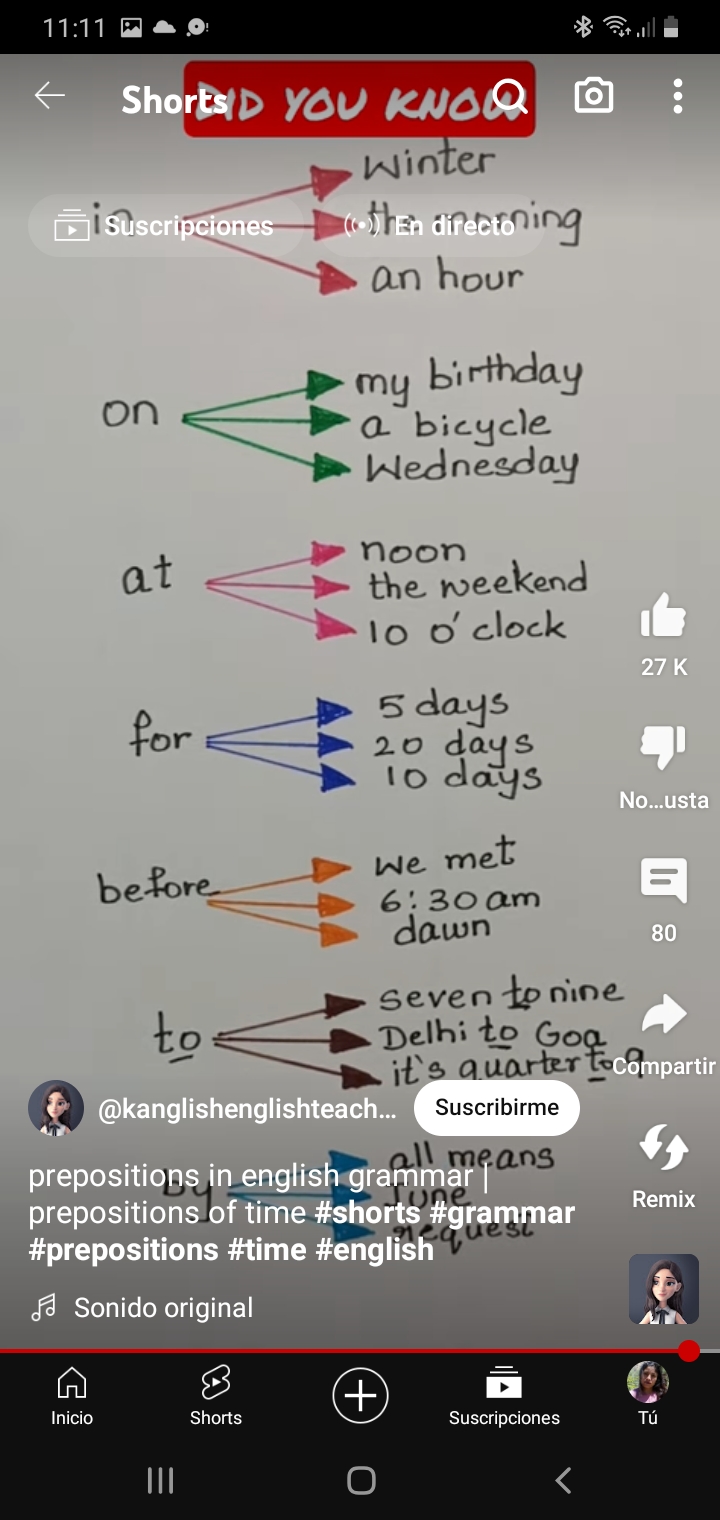 11:11
Shorts
DID YOU KNOW
in
winter
the morning
an hour
Suscripciones
En directo
on
my birthday
a bicycle
Wednesday
at
noon
the weekend
10 o'clock
for
5 days
20 days
10 days
before
we met
6:30 am
dawn
to
seven to nine
Delhi to Goa
it's quarter to 9
by
all means
June
request
27 K
No...usta
80
Compartir
Remix
@kanglishenglishteach...
Suscribirme
prepositions in english grammar |
prepositions of time #shorts #grammar
#prepositions #time #english
Sonido original
Inicio
Shorts
Suscripciones
Tú